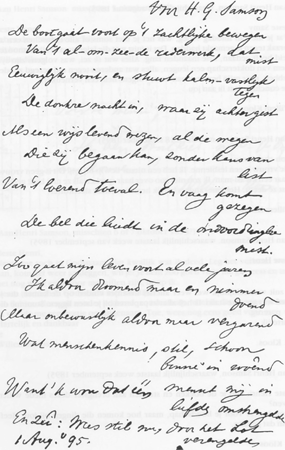 Voor H. G. Samson
De boot gaat voort op 't zachtlijke bewegen
Van 't al-om-zee-de raderwerk, dat
nooit
Eeuwiglijk
en stuwt kalm-vastlijk
tegen
De donkre nacht in, waar zij achter
Als een wijs levend wezen, al de wegen
Die zij begaan kan, zonder kans van
list
Van 't loerend toeval. En vaag komt
gezegen
De bel die luidt in de
mist.
Zoo gaat mijn leven voort al vele jaren
Ik al door droomend maar en nimmer
doend
Maar onbewustlijk aldoor maar vergarend
Wat menschenkennis, stil, schoon
binne' in
Want 'k won dat één
mij in
liefde omstrengelde
En zei: Wees stil nu, door het Lot
1 Aug. '95.